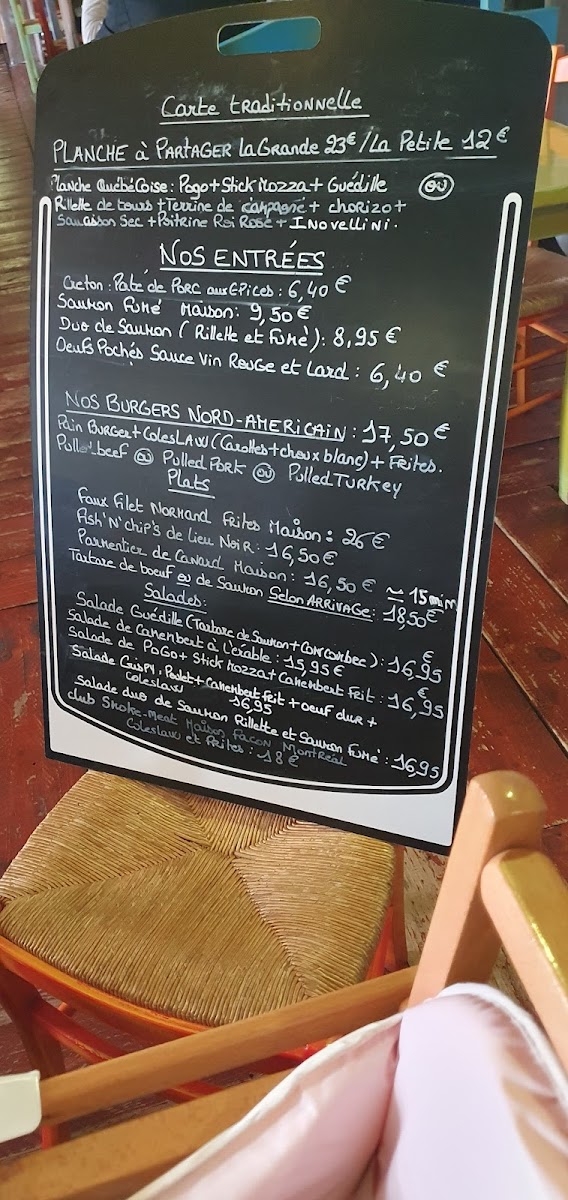 Carte traditionnelle
PLANCHE à PARTAGER La Grande 23€ / La Petite 12€
Planche Québécoise : Pogo + Stick Mozza + Guédille ou
Rillette de tours + Terrine de campagne + chorizo +
Saucisson Sec + Poitrine Roi Rose + INovellini.
NOS ENTRÉES
Creton : Paté de Porc aux EPices : 6,40 €
Saumon Fumé Maison : 9,50 €
Duo de Saumon ( Rillette et Fumé ) : 8,95 €
Oeufs Pochés Sauce Vin Rouge et Lard : 6,40 €
NOS BURGERS NORD-AMERICAIN : 17,50€
Pain Burger + ColesLaw (Carottes + choux blanc) + Frites.
Pulled beef ou Pulled Pork ou Pulled Turkey
Plats
Faux Filet Normand Frites Maison : 26 €
Fish'N'chip's de Lieu Noir : 16,50€
Parmentier de Canard Maison : 16,50 € ≈ 15 min
Tartare de boeuf ou de Saumon Selon ARRIVAGE : 18,50€
Salades :
Salade Guédille (Tartare de Saumon + Concombre) : 16,95€
Salade de Camembert à l'érable : 15,95€
Salade de PoGo + Stick Mozza + Camembert Frit : 16,95€
Salade Crispy, Poulet + Camembert Frit + oeuf dur +
coleslaw 16,95
Salade duo de Saumon Rillette et Saumon Fumé : 16,95
club Smoke-meat Maison Facon Montréal
Coleslaw et Frites : 18 €